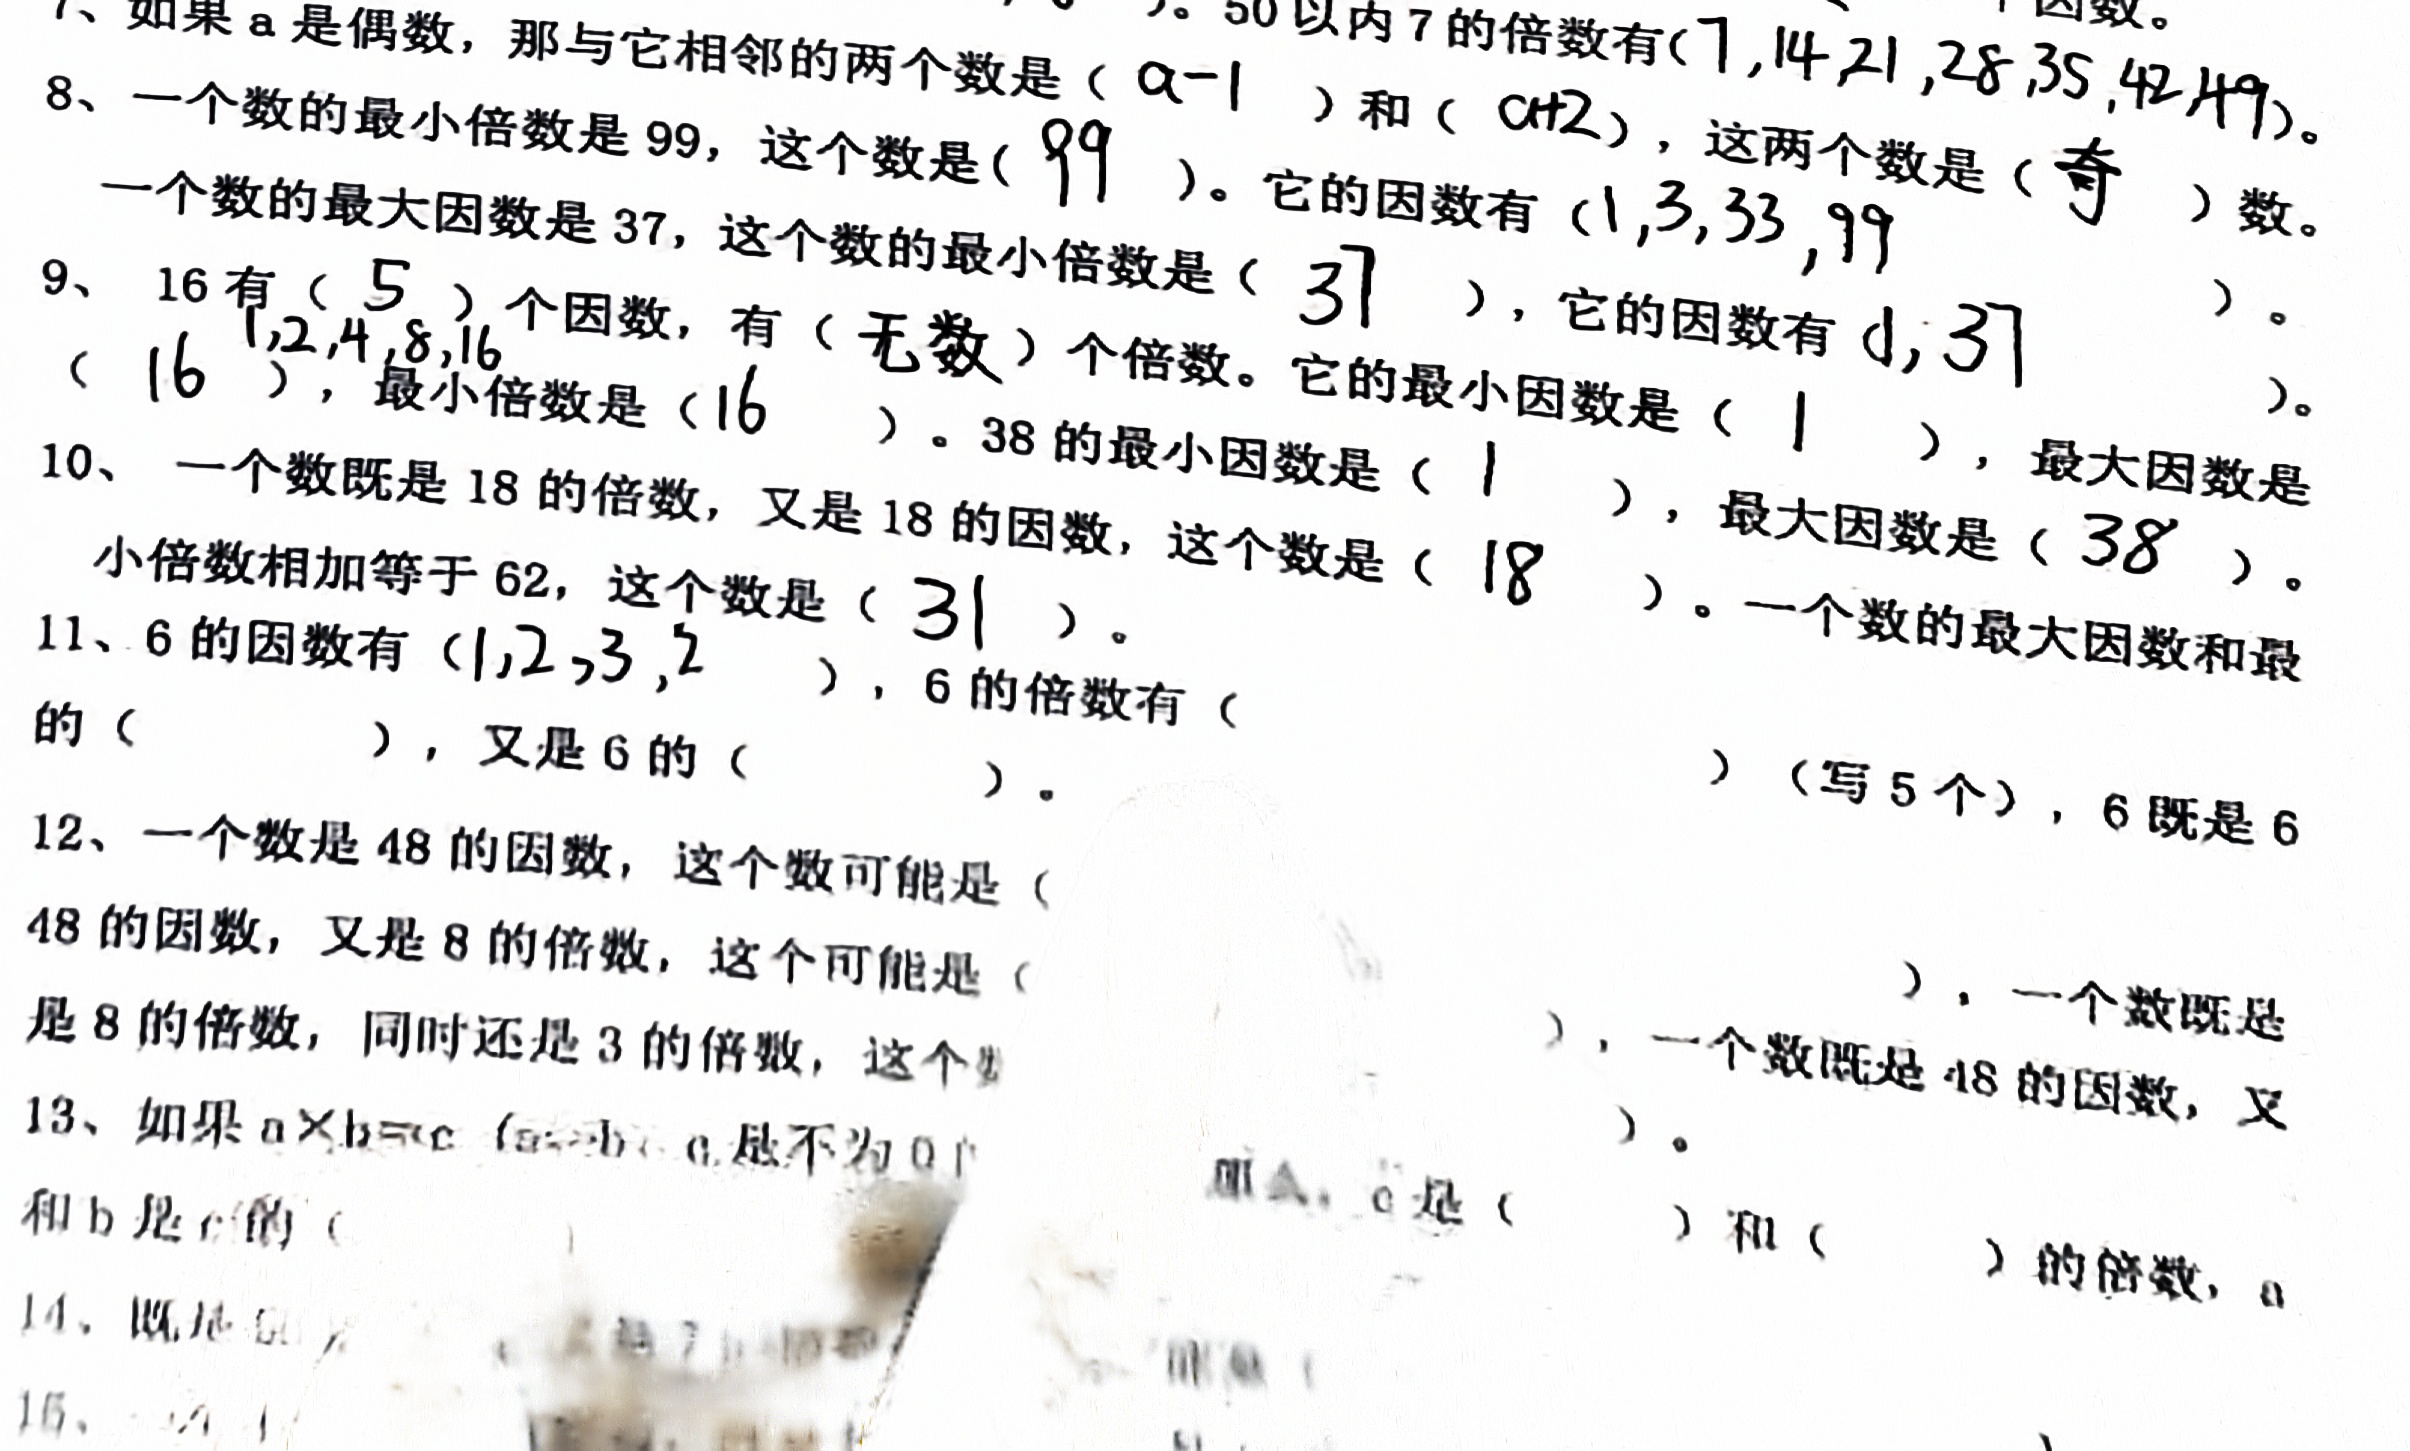 个因数。
)。50以内7的倍数有(7,14,21,28,35,42,49)。
7、如果a是偶数，那与它相邻的两个数是（a-1）和（a+2），这两个数是（奇）数。
8、一个数的最小倍数是99，这个数是(99)。它的因数有（1,3,33,99）。
一个数的最大因数是37，这个数的最小倍数是（37），它的因数有（1,37)。
9、16有（5）个因数，有（无数）个倍数。它的最小因数是（1），最大因数是
1,2,4,8,16
（16），最小倍数是（16）。38的最小因数是（1），最大因数是（38）。
10、一个数既是18的倍数，又是18的因数，这个数是（18）。一个数的最大因数和最
小倍数相加等于62，这个数是（31）。
11、6的因数有（1,2,3,2），6的倍数有（）（写5个），6既是6
的（），又是6的（）。
12、一个数是48的因数，这个数可能是（），一个数既是
48的因数，又是8的倍数，这个可能是（），一个数既是48的因数，又
是8的倍数，同时还是3的倍数，这个）。
13、如果a×b=c（a、b、c是不为0 c是（）和（）的倍数，a
和b是c的（
14、既是